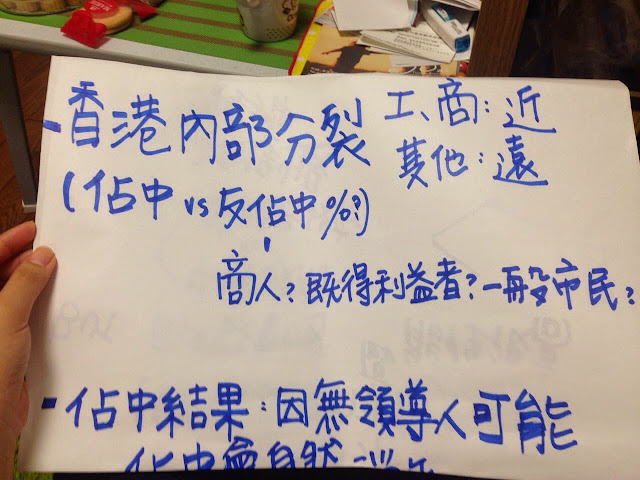 - 香港內部分裂 工、商：近
其他：遠
(佔中 vs 反佔中 %?)
商人？既得利益者？一般市民？
- 佔中結果：因無領導人可能
佔中會自然